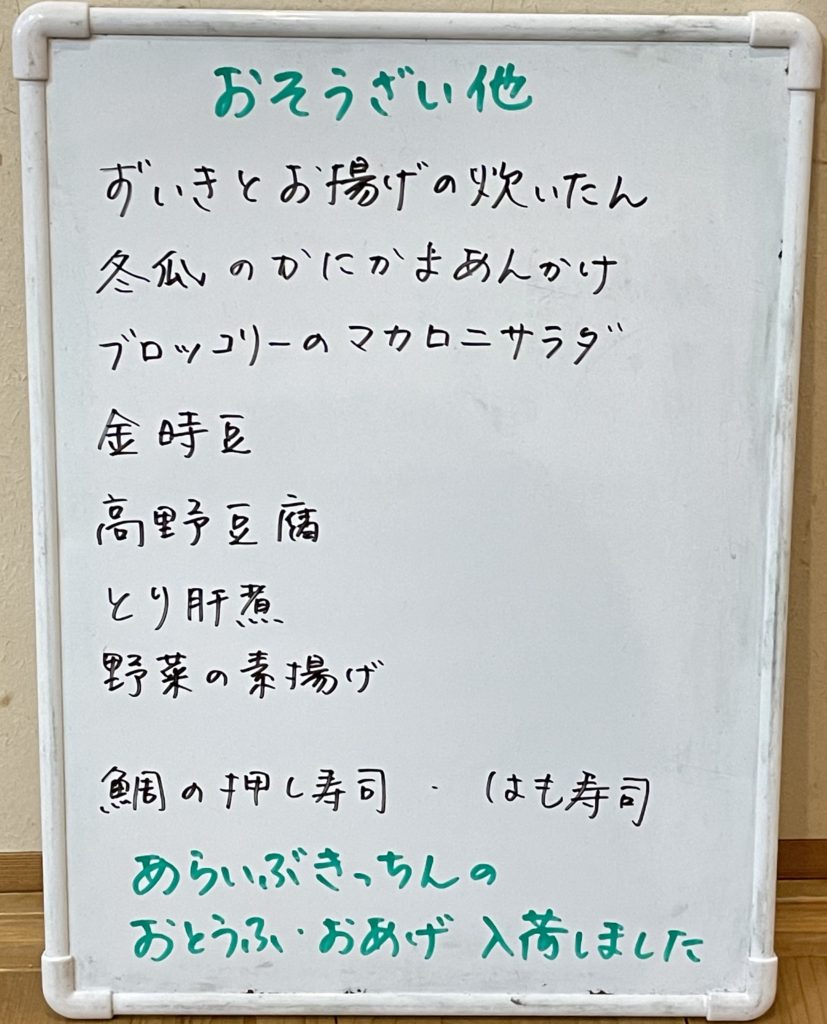 おそうざい他
ずいきとお揚げの炊いたん
冬瓜のかにかまあんかけ
ブロッコリーのマカロニサラダ
金時豆
高野豆腐
とり肝煮
野菜の素揚げ
鯛の押し寿司・はも寿司
あらいぶきっちんの
おとうふ・おあげ 入荷しました